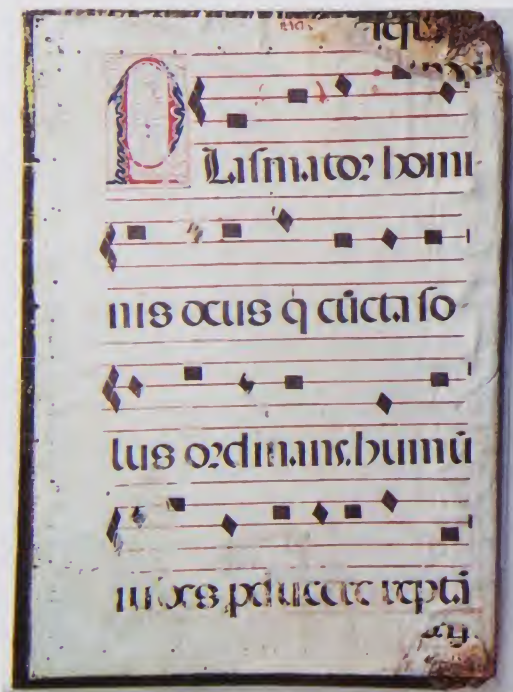 PLasmator homi
nis deus q̄ cūcta so
lus ordinans.humū
iubes ꝓducere reptā